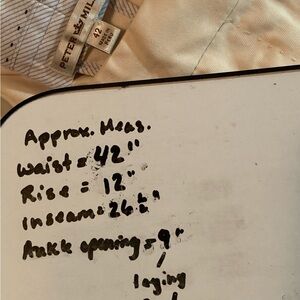 PETER MIL
42
Approx. Meas.
Waist = 42"
Rise = 12"
inseam = 26 1/2"
Ankle opening = 9"
laying